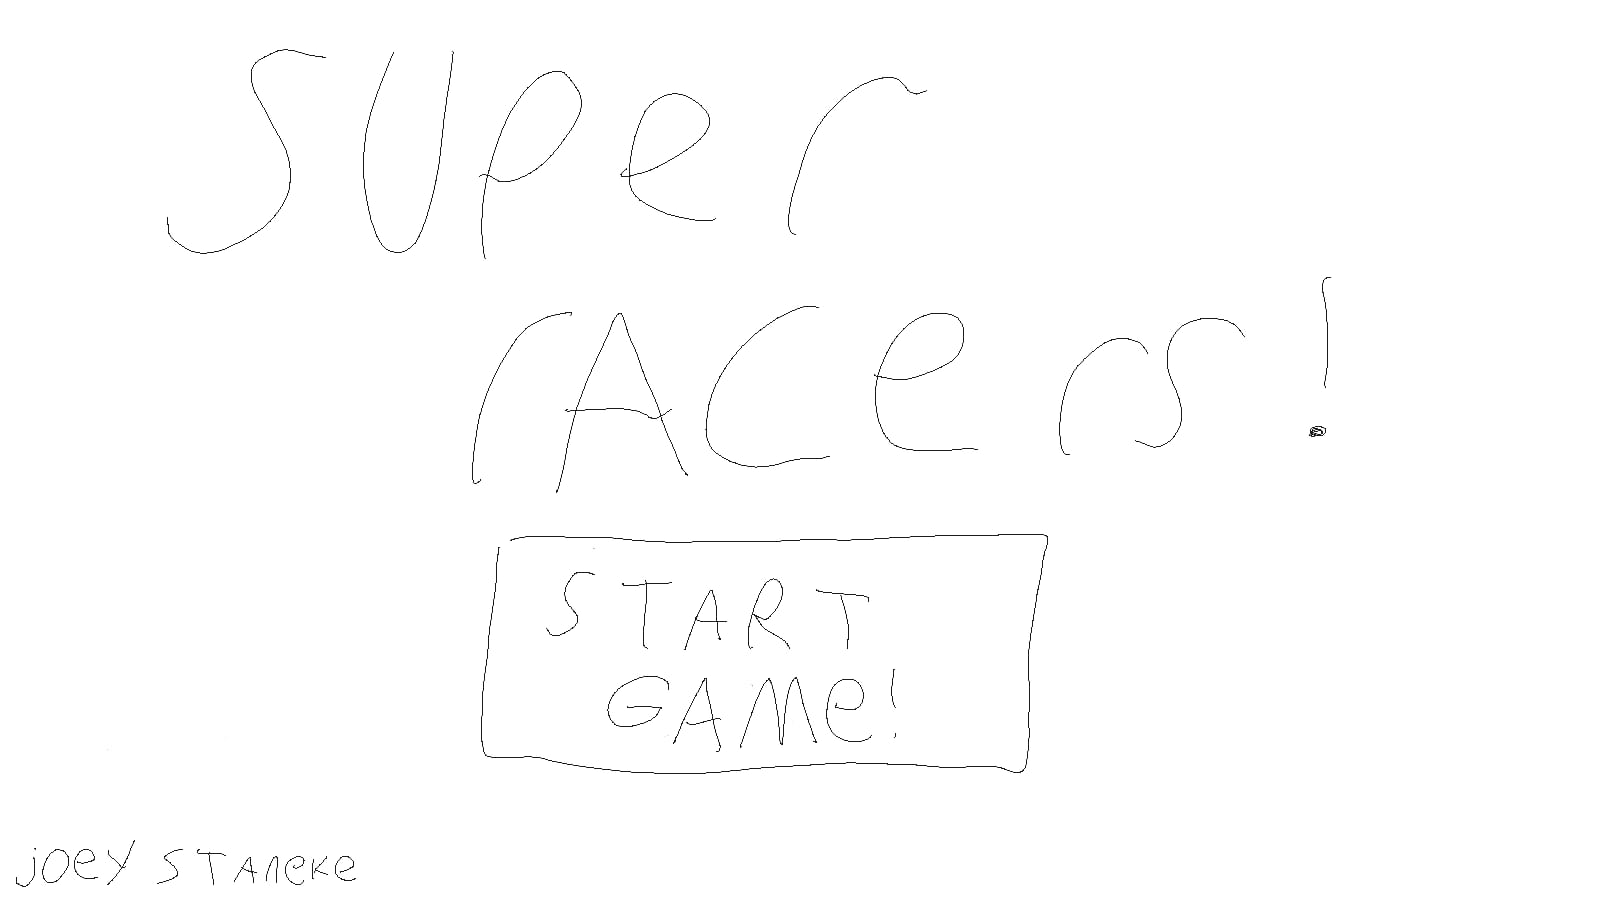 SUPer
rACers!
START
GAMe!
joey STAneke